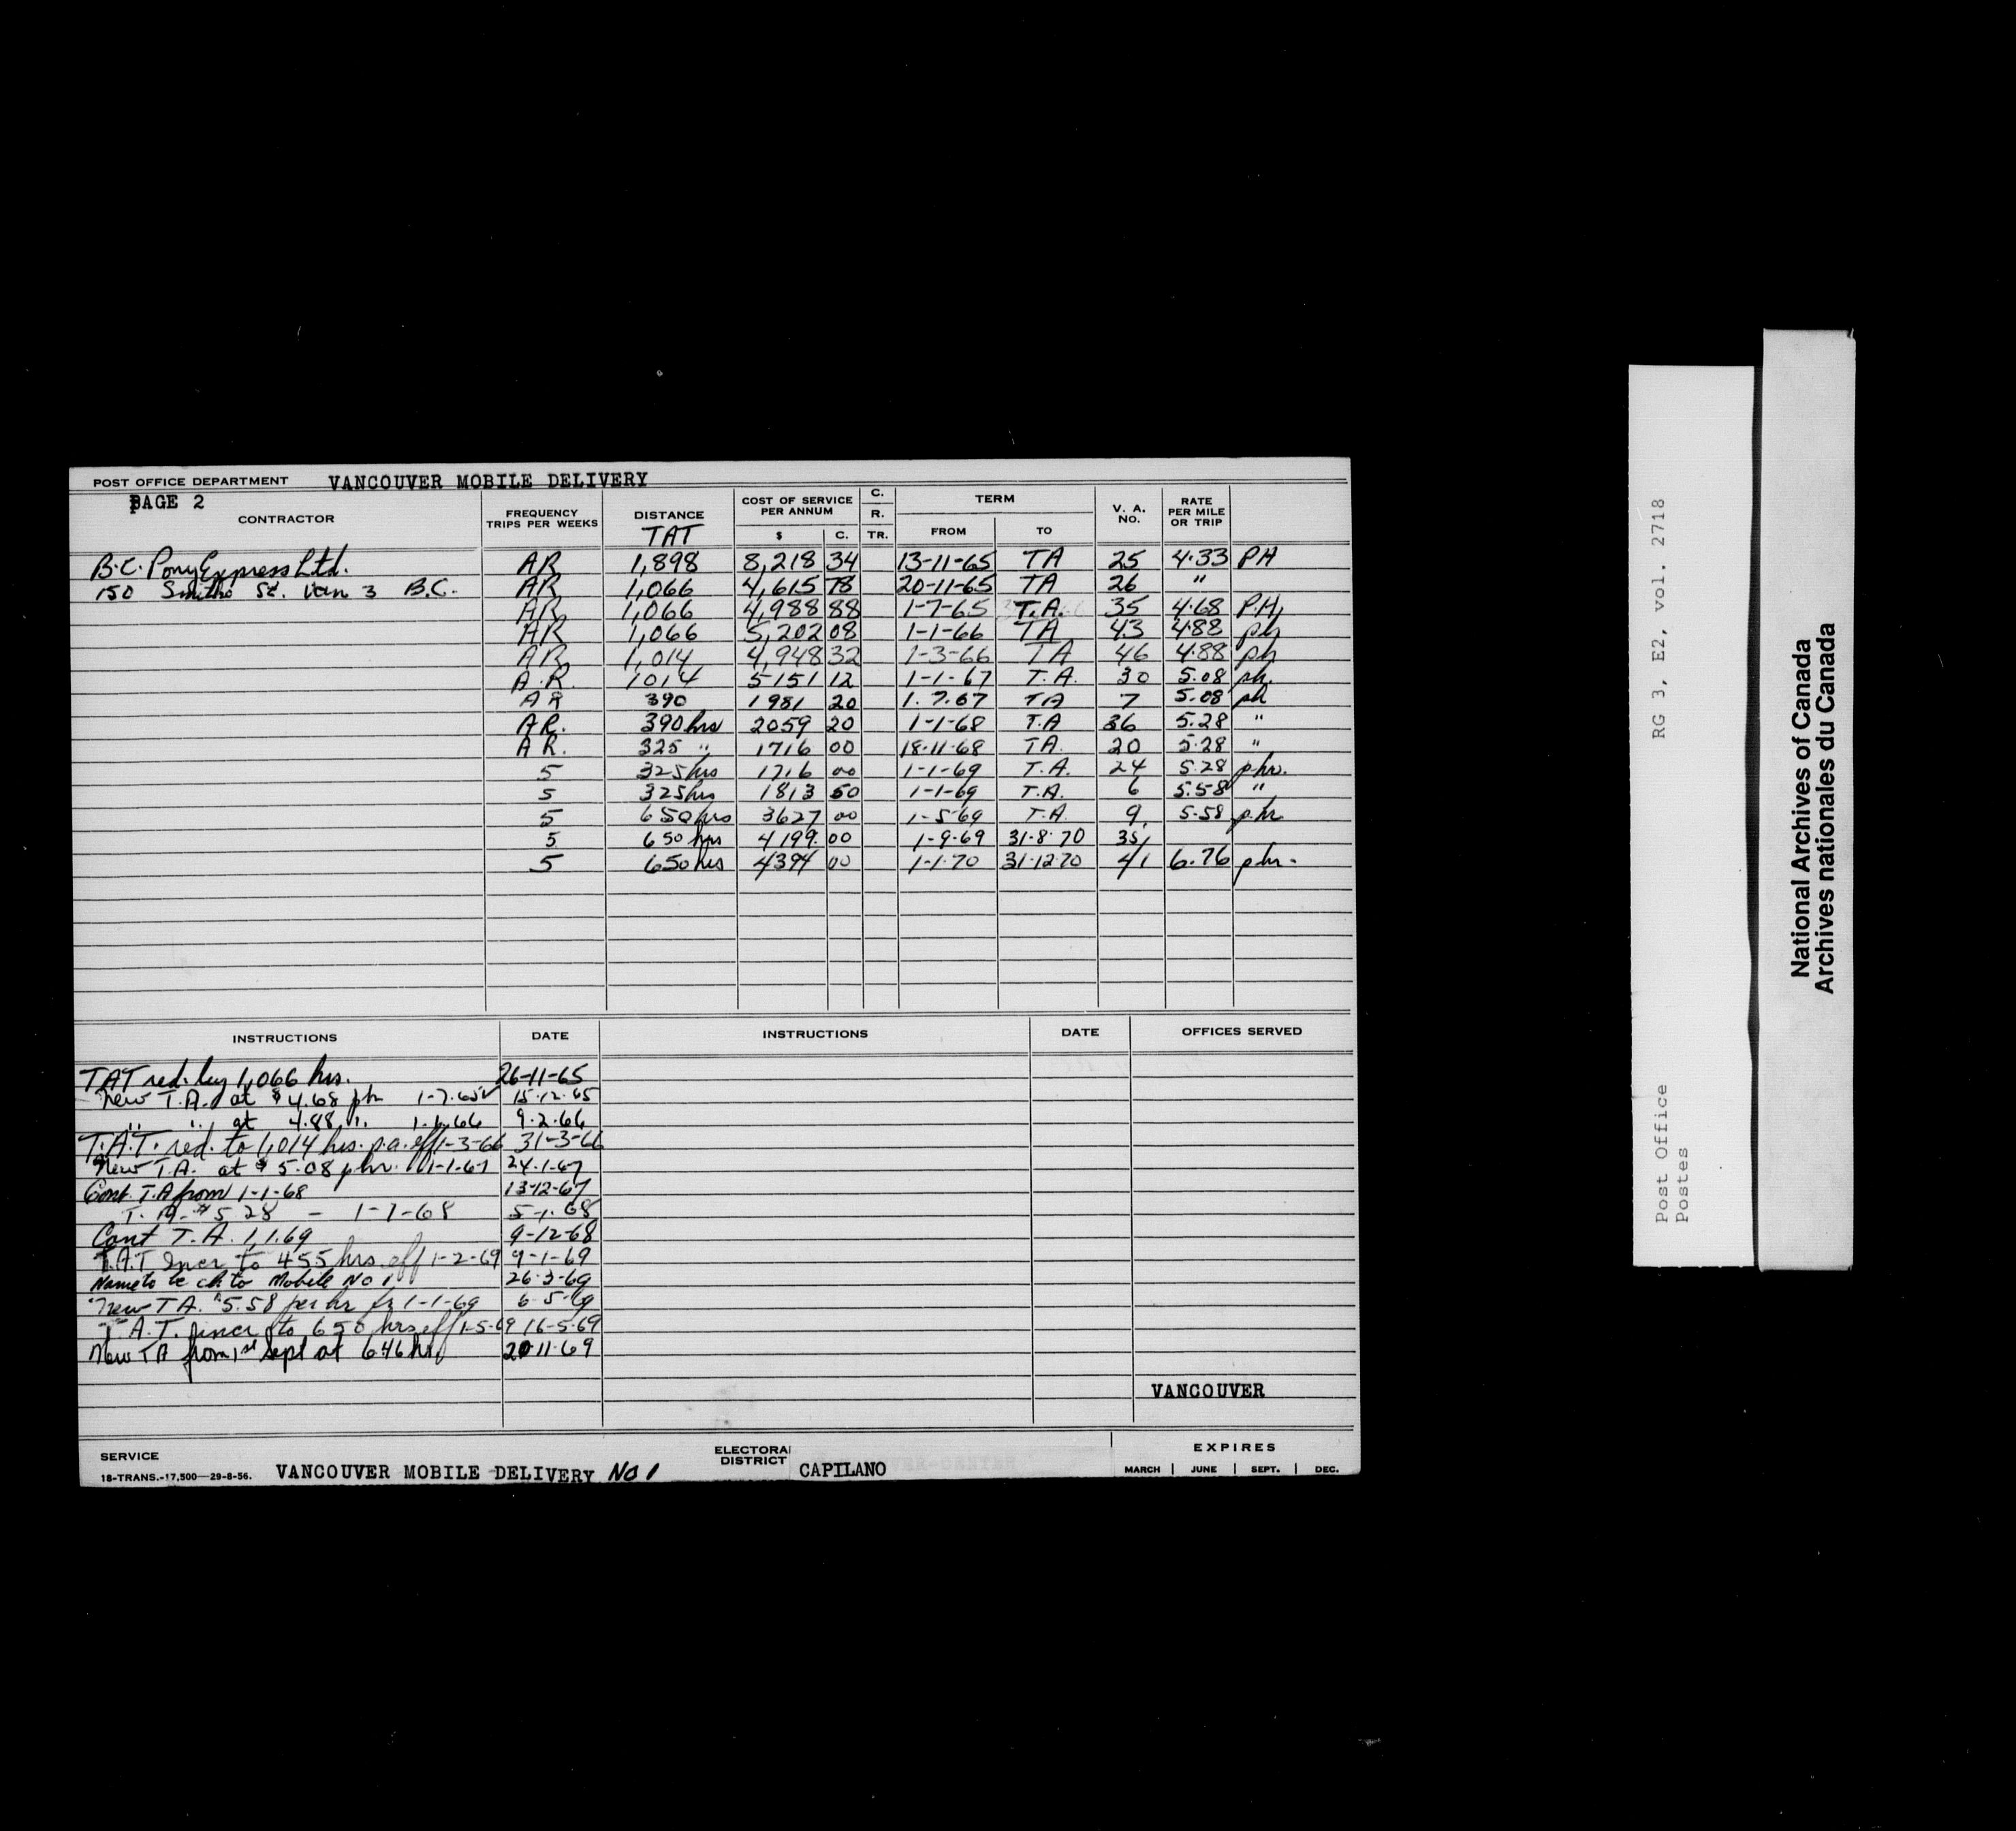 POST OFFICE DEPARTMENT VANCOUVER MOBILE DELIVERY
PAGE 2
CONTRACTOR FREQUENCY TRIPS PER WEEKS DISTANCE TAT COST OF SERVICE PER ANNUM $ C. C. R. TR. TERM FROM TO V. A. NO. RATE PER MILE OR TRIP
B.C. Pony Express Ltd. AR 1,898 8,218 34 13-11-65 TA 25 4.33 PH
150 Smithe St. Van 3 B.C. AR 1,066 4,615 78 20-11-65 TA 26 "
AR 1,066 4,988 88 1-7-65 T.A. 35 4.68 P.H.
AR 1,066 5,202 08 1-1-66 TA 43 4.88 ph
AR 1,014 4,948 32 1-3-66 TA 46 4.88 ph
A.R. 1014 5151 12 1-1-67 T.A. 30 5.08 ph.
AR 390 1981 20 1.7.67 TA 7 5.08 ph
AR. 390 hrs 2059 20 1-1-68 T.A 36 5.28 "
AR. 325 " 1716 00 18-11-68 TA. 20 5.28 "
5 325 hrs 1716 00 1-1-69 T.A. 24 5.28 phr.
5 325 hrs 1813 50 1-1-69 T.A. 6 5.58 "
5 650 hrs 3627 00 1-5-69 T.A. 9 5.58 phr
5 650 hrs 4199.00 1-9-69 31-8-70 35
5 650 hrs 4394 00 1-1-70 31-12-70 41 6.76 phr.
INSTRUCTIONS DATE INSTRUCTIONS DATE OFFICES SERVED
TAT red. by 1,066 hrs. 26-11-65
New T.A. at $4.68 ph 1-7-65 15-12-65
" " at 4.88 " 1-1-66 9-2-66
T.A.T. red. to 1,014 hrs. p.a. eff 1-3-66 31-3-66
New T.A. at $5.08 phr. 1-1-67 24-1-67
Cont. T.A from 1-1-68 13-12-67
T.A. $5 28 – 1-1-68 5-1-68
Cont T.A. 1.1.69 9-12-68
T.A.T Incr to 455 hrs eff 1-2-69 9-1-69
Name to be ch to Mobile No 1 26-3-69
New TA. $5.58 per hr fr 1-1-69 6-5-69
T.A.T. incr to 650 hrs eff 1-5-69 16-5-69
New TA from 1st Sept at 6.46 hr 20-11-69
VANCOUVER
SERVICE
18-TRANS.-17,500—29-8-56. VANCOUVER MOBILE DELIVERY No 1 ELECTORAL DISTRICT CAPILANO EXPIRES MARCH JUNE SEPT. DEC.
RG 3, E2, vol. 2718
Post Office
Postes
National Archives of Canada
Archives nationales du Canada